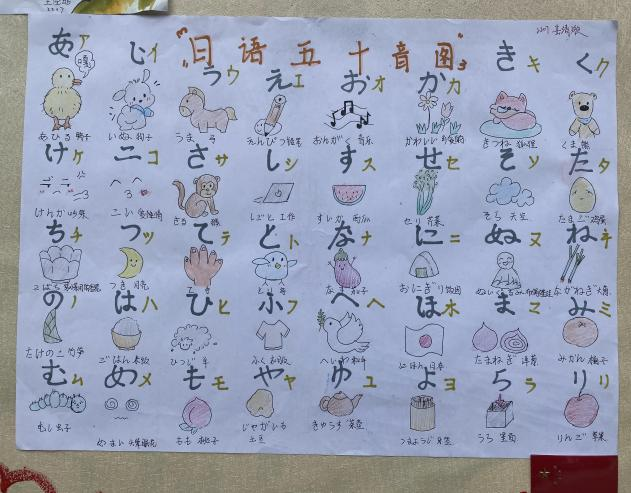 "日语五十音图"
あ ア い イ う ウ え エ お オ か カ き キ く ク
嘎!
あひる 鸭子 いぬ 狗子 うま 马 えんぴつ 铅笔 おんがく 音乐 かわいい きつね 狐狸 くま 熊
け ケ こ コ さ サ し シ す ス せ セ そ ソ た タ
けんか 吵架 こい さる 猴 しごと 工作 すいか 西瓜 せり 芹菜 そら 天空 たまご 鸡蛋
ち チ つ ツ て テ と ト な ナ に ニ ぬ ヌ ね ネ
つき 月亮 て 手 とり 鸟 なす 茄子 おにぎり 饭团 ぬいぐるみ ながねぎ 大葱
の ノ は ハ ひ ヒ ふ フ へ ヘ ほ ホ ま マ み ミ
たけのこ 竹笋 ごはん 米饭 ひつじ 羊 ふく 衣服 へいわ 和平 にほん 日本 たまねぎ 洋葱 みかん 橘子
む ム め メ も モ や ヤ ゆ ユ よ ヨ ら ラ り リ
むし 虫子 めまい もも 桃子 じゃがいも 土豆 きゅうす 茶壶 つまようじ 牙签 りんご 苹果